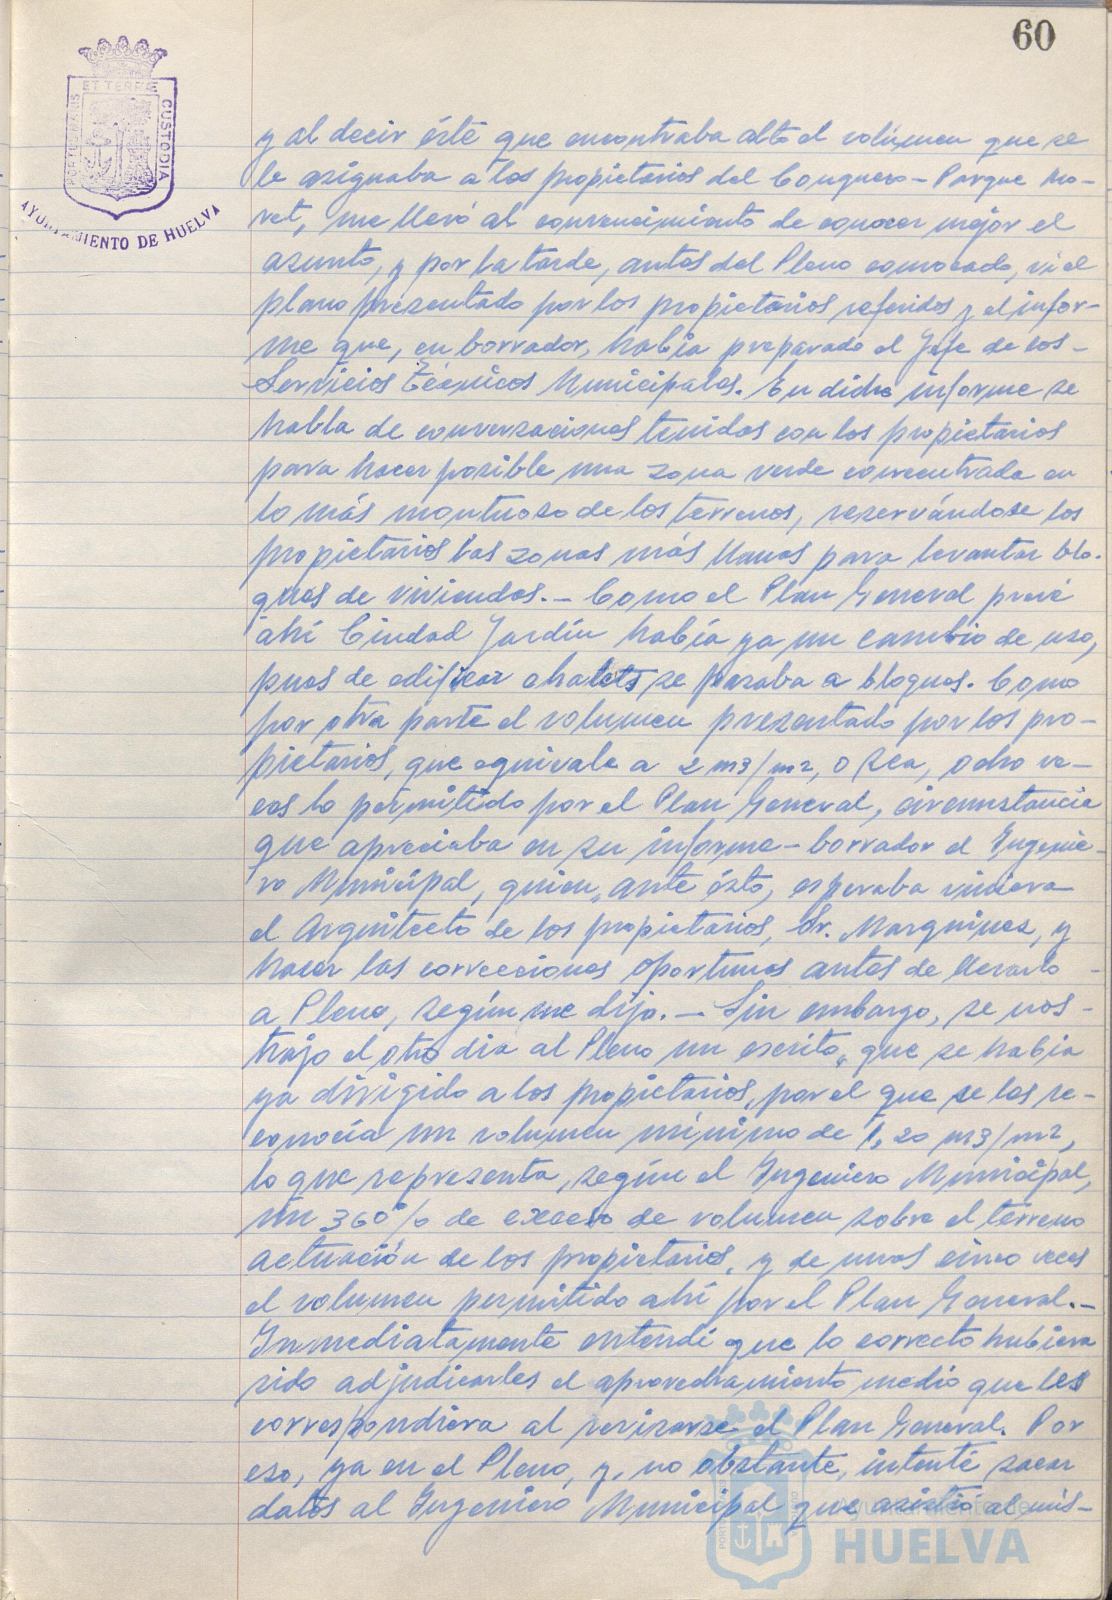 60
PORTUS MARIS ET TERRÆ CUSTODIA
AYUNTAMIENTO DE HUELVA
y al decir éste que encontraba alto el volúmen que se
le asignaba a los propietarios del Conquero - Parque Mo-
ret, me llevó al convencimiento de conocer mejor el
asunto, y por la tarde, antes del Pleno convocado, vi el
plano presentado por los propietarios referidos y el infor-
me que, en borrador, había preparado el Jefe de los
Servicios Técnicos Municipales. En dicho informe se
habla de conversaciones tenidas con los propietarios
para hacer posible una zona verde concentrada en
lo más montuoso de los terrenos, reservándose los
propietarios las zonas más llanas para levantar blo-
ques de viviendas.- Como el Plan General prevé
ahí Ciudad Jardín había ya un cambio de uso,
pues de edificar chalets se pasaba a bloques. Como
por otra parte el volumen presentado por los pro-
pietarios, que equivale a 2 m3/m2, o sea, ocho ve-
ces lo permitido por el Plan General, circunstancia
que apreciaba en su informe-borrador el Ingenie-
ro Municipal, quien, ante ésto, esperaba viniera
el Arquitecto de los propietarios, Sr. Marquinez, y
hacer las correcciones oportunas antes de llevarlo
a Pleno, según me dijo.- Sin embargo, se nos
trajo el otro día al Pleno un escrito, que se había
ya dirigido a los propietarios, por el que se les re-
conocía un volumen mínimo de 1,20 m3/m2,
lo que representa, según el Ingeniero Municipal,
un 360% de exceso de volumen sobre el terreno
actuación de los propietarios, y de unas cinco veces
el volumen permitido ahí por el Plan General.-
Inmediatamente entendí que lo correcto hubiera
sido adjudicarles el aprovechamiento medio que les
correspondiera al revisarse el Plan General. Por
eso, ya en el Pleno, y, no obstante, intenté sacar
datos al Ingeniero Municipal que asistió al mis-
Ayuntamiento de
HUELVA